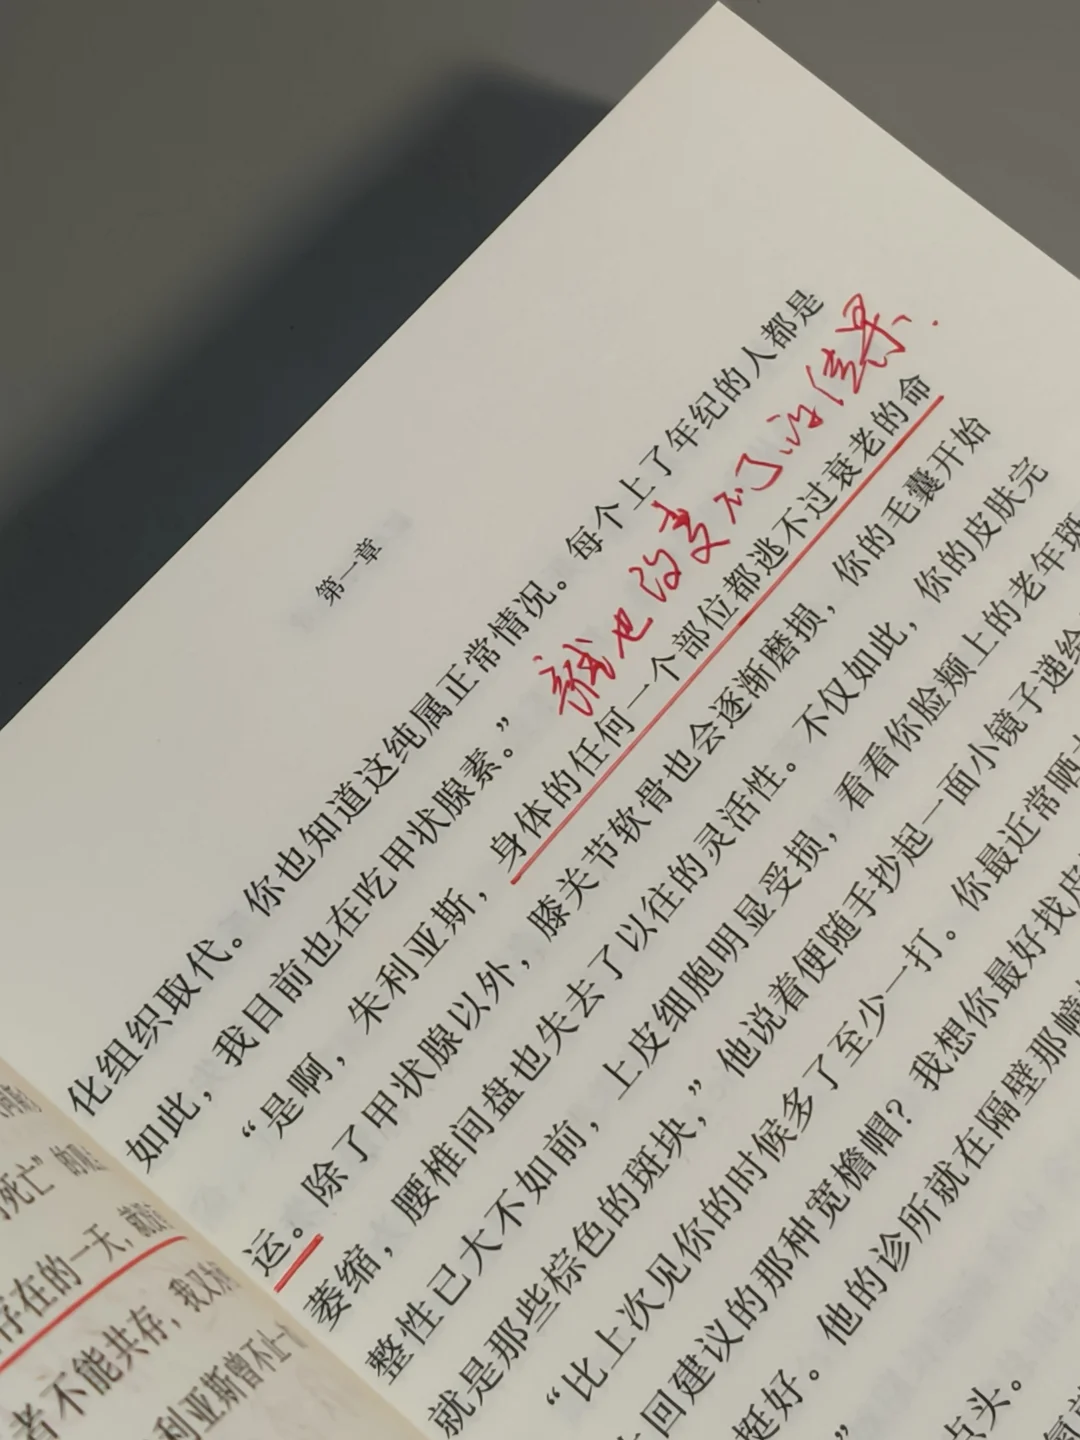 第一章
化组织取代。你也知道这纯属正常情况。每个上了年纪的人都是
如此，我目前也在吃甲状腺素。”
谁也改变不了的结果.
“是啊，朱利亚斯，身体的任何一个部位都逃不过衰老的命
运。除了甲状腺以外，膝关节软骨也会逐渐磨损，你的毛囊开始
萎缩，腰椎间盘也失去了以往的灵活性。不仅如此，你的皮肤完
整性已大不如前，上皮细胞明显受损，看看你脸颊上的老年斑
就是那些棕色的斑块，”他说着便随手抄起一面小镜子递给
“比上次见你的时候多了至少一打。你最近常晒
回建议的那种宽檐帽？我想你最好找
挺好。他的诊所就在隔壁那幢
”
点头。
死亡”的
存在的一天，就
者不能共存，我又
利亚斯曾不止